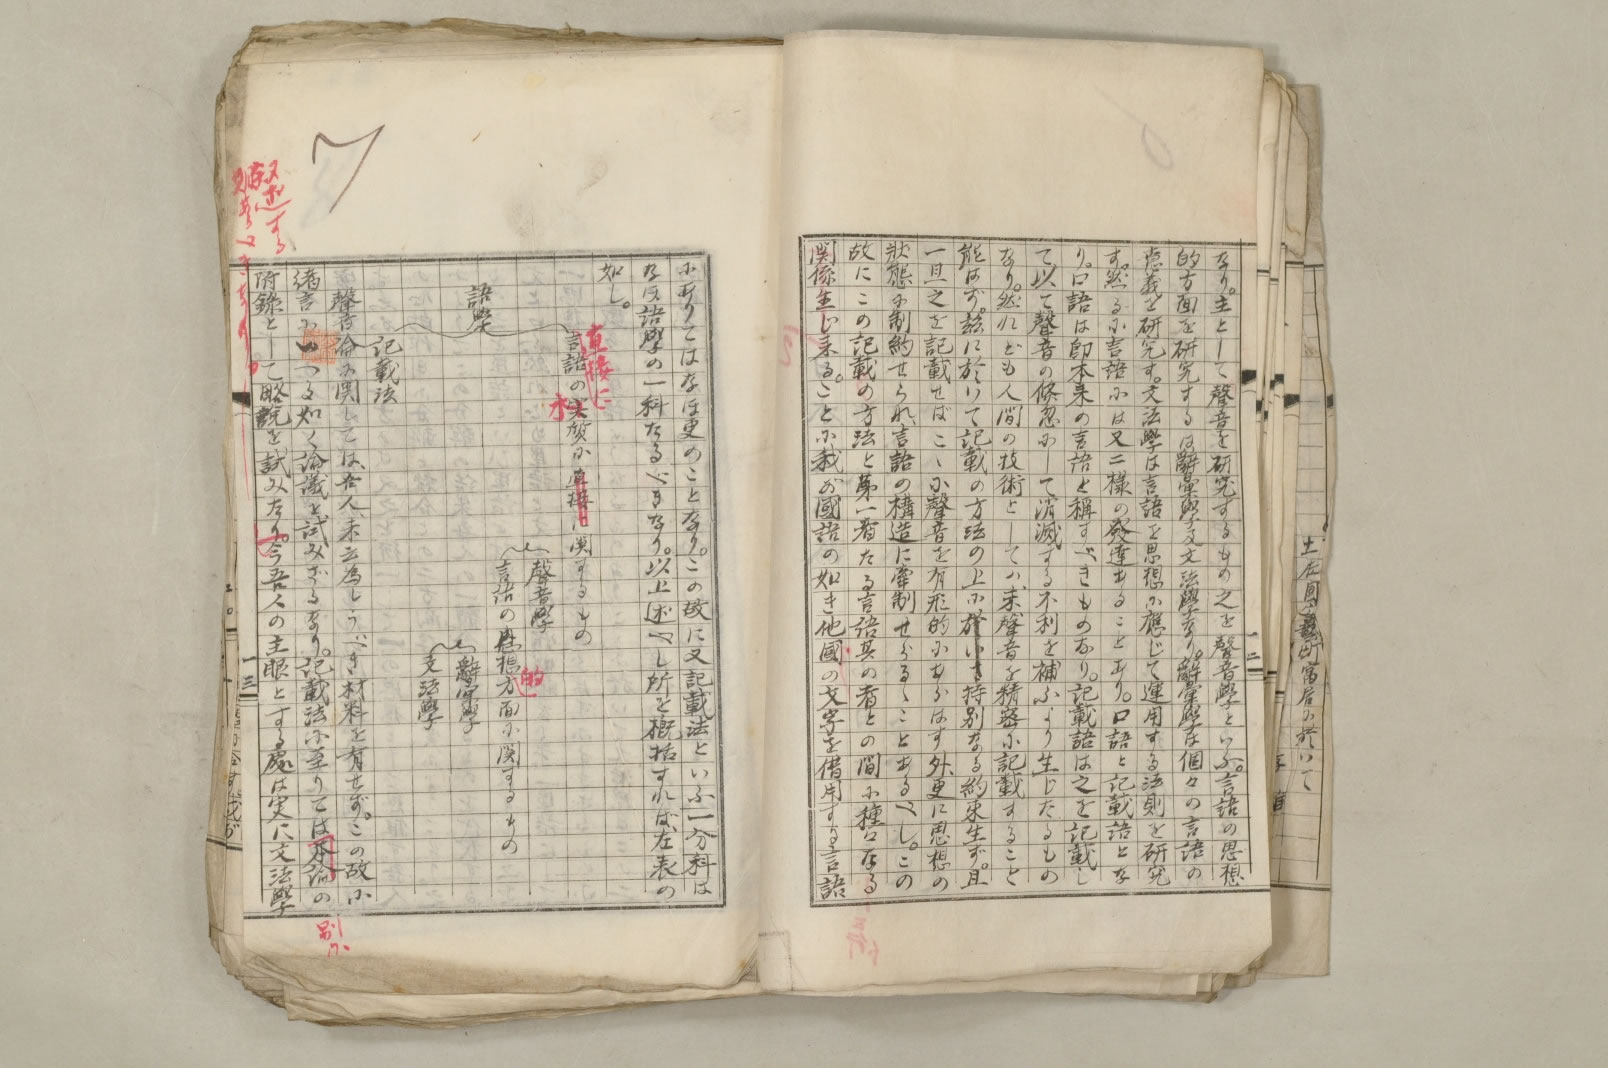 なり。主として聲音を研究するもの之を聲音學といふ。言語の思想
的方面を研究するは辭彙學及文法學なり。辭彙學は個々の言語の
意義を研究す。文法學は言語を思想に應じて運用する法則を研究
す。然るに言語には又二樣の發達あることあり。口語と記載語とな
り。口語は即本来の言語と稱すべきものなり。記載語は之を記載し
て以て聲音の倏忽にして消滅する不利を補ふより生じたるもの
なり。然れども人間の技術としては、未聲音を精密に記載すること
能はず。茲に於いて記載の方法の上に於いて特別なる約束生ず。且
一旦之を記載せばこゝに聲音を有形的にあらはす外更に思想の
狀態に制約せられ言語の構造に牽制せらるゝことあるべし。この
故にこの記載の方法と第一者たる言語其の者との間に種々なる
関係生じ来る。ことに我が國語の如き他國の文字を借用する言語
にありてはなほ更のことなり。この故に又記載法といふ一分科は
なほ語學の一科たるべきなり。以上述べし所を概括すれば、左表の
如し。
直接に
言語の実質に直接に関するもの
聲音學
言語の思想方面に関するもの
的
辭彙學
文法學
語學
記載法
聲音論に関しては、吾人、未云為しうべき材料を有せず。この故に
緒言にいへる如く論議を試みざるなり。記載法に至りては本論の
別に
附錄として略説を試みたり。今吾人の主眼とする處は実に文法學
又述する
一二
一三